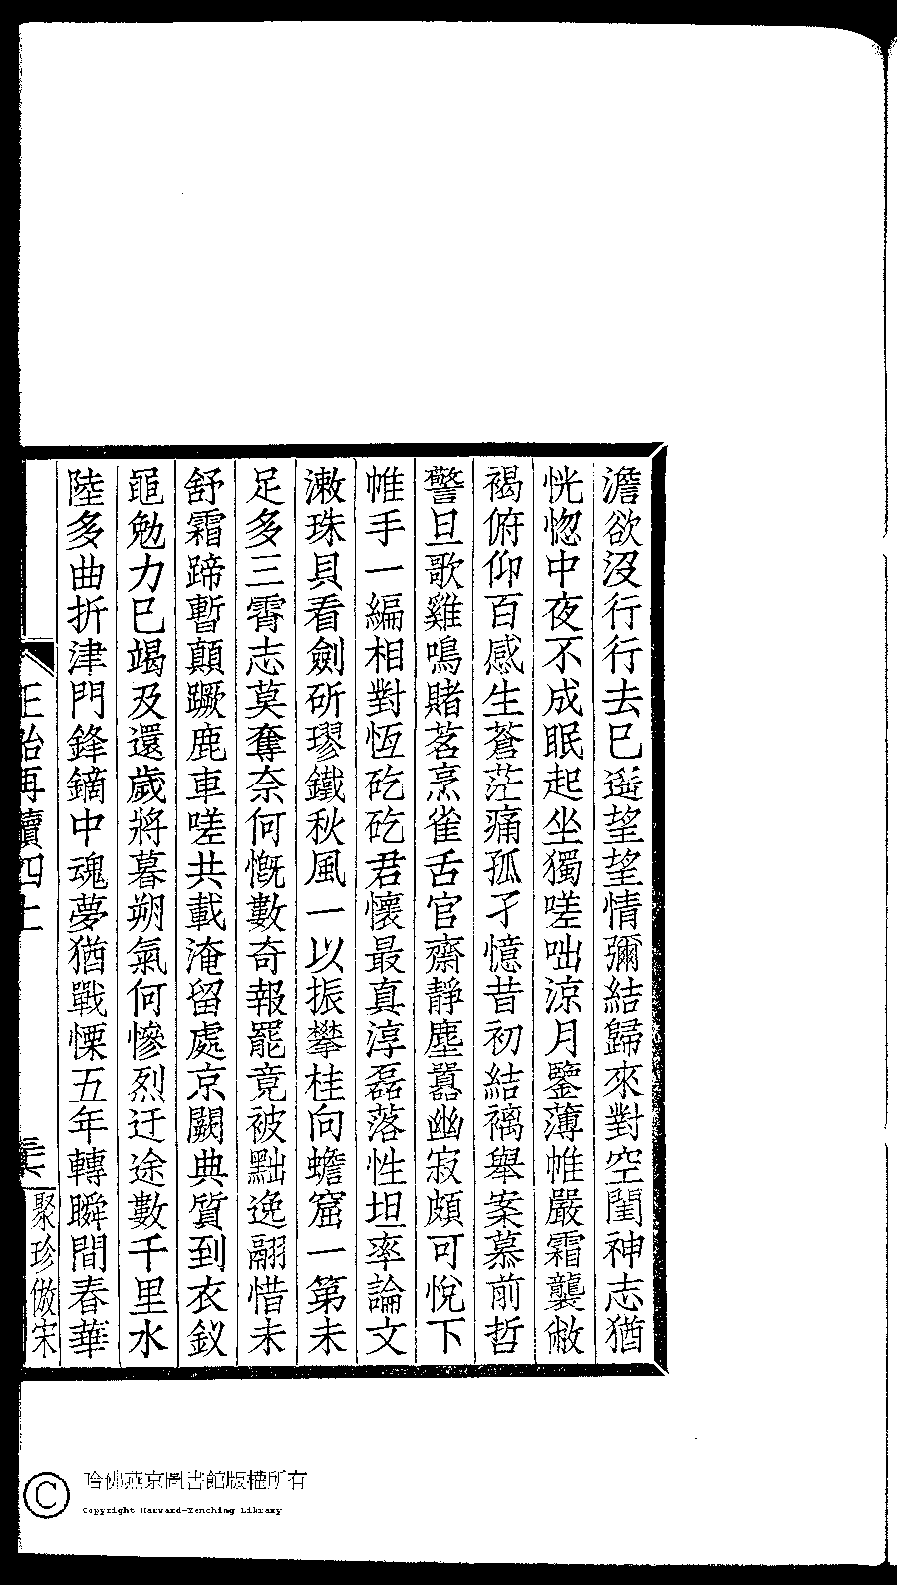 澹欲沒行行去已遥望望情彌結歸來對空閨神志猶
恍惚中夜不成眠起坐獨嗟咄涼月鑒薄帷嚴霜襲敝
褐俯仰百感生蒼茫痛孤孑憶昔初結褵舉案慕前哲
警旦歌雞鳴賭茗烹雀舌官齋靜塵囂幽寂頗可悅下
帷手一編相對恆矻矻君懷最真淳磊落性坦率論文
漱珠貝看劍斫璆鐵秋風一以振攀桂向蟾窟一第未
足多三霄志莫奪奈何慨數奇報罷竟被黜逸翮惜未
舒霜蹄暫顛蹶鹿車嗟共載淹留處京闕典質到衣釵
黽勉力已竭及還歲將暮朔氣何慘烈迂途數千里水
陸多曲折津門鋒鏑中魂夢猶戰慄五年轉瞬間春華
正始再續四上
聚珍倣宋
哈佛燕京圖書館版權所有
Copyright Harvard-Yenching Library